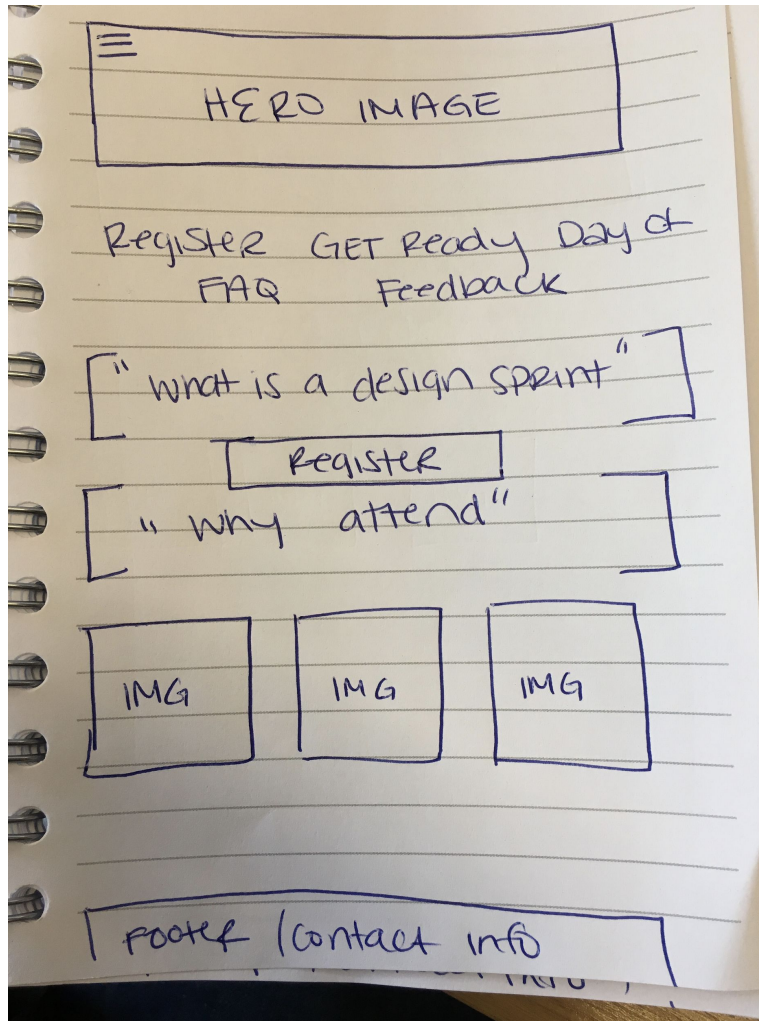 HERO IMAGE
Register GET Ready Day of
FAQ Feedback
"What is a design sprint"
Register
"Why attend"
IMG IMG IMG
Footer / Contact info